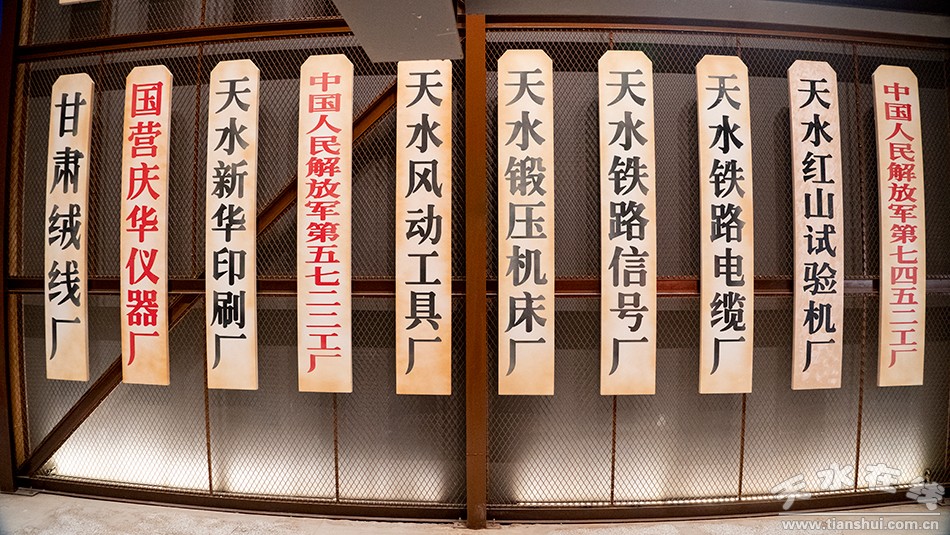 甘肃绒线厂
国营庆华仪器厂
天水新华印刷厂
中国人民解放军第五七二三工厂
天水风动工具厂
天水锻压机床厂
天水铁路信号厂
天水铁路电缆厂
天水红山试验机厂
中国人民解放军第七四五二工厂
天水在线
www.tianshui.com.cn